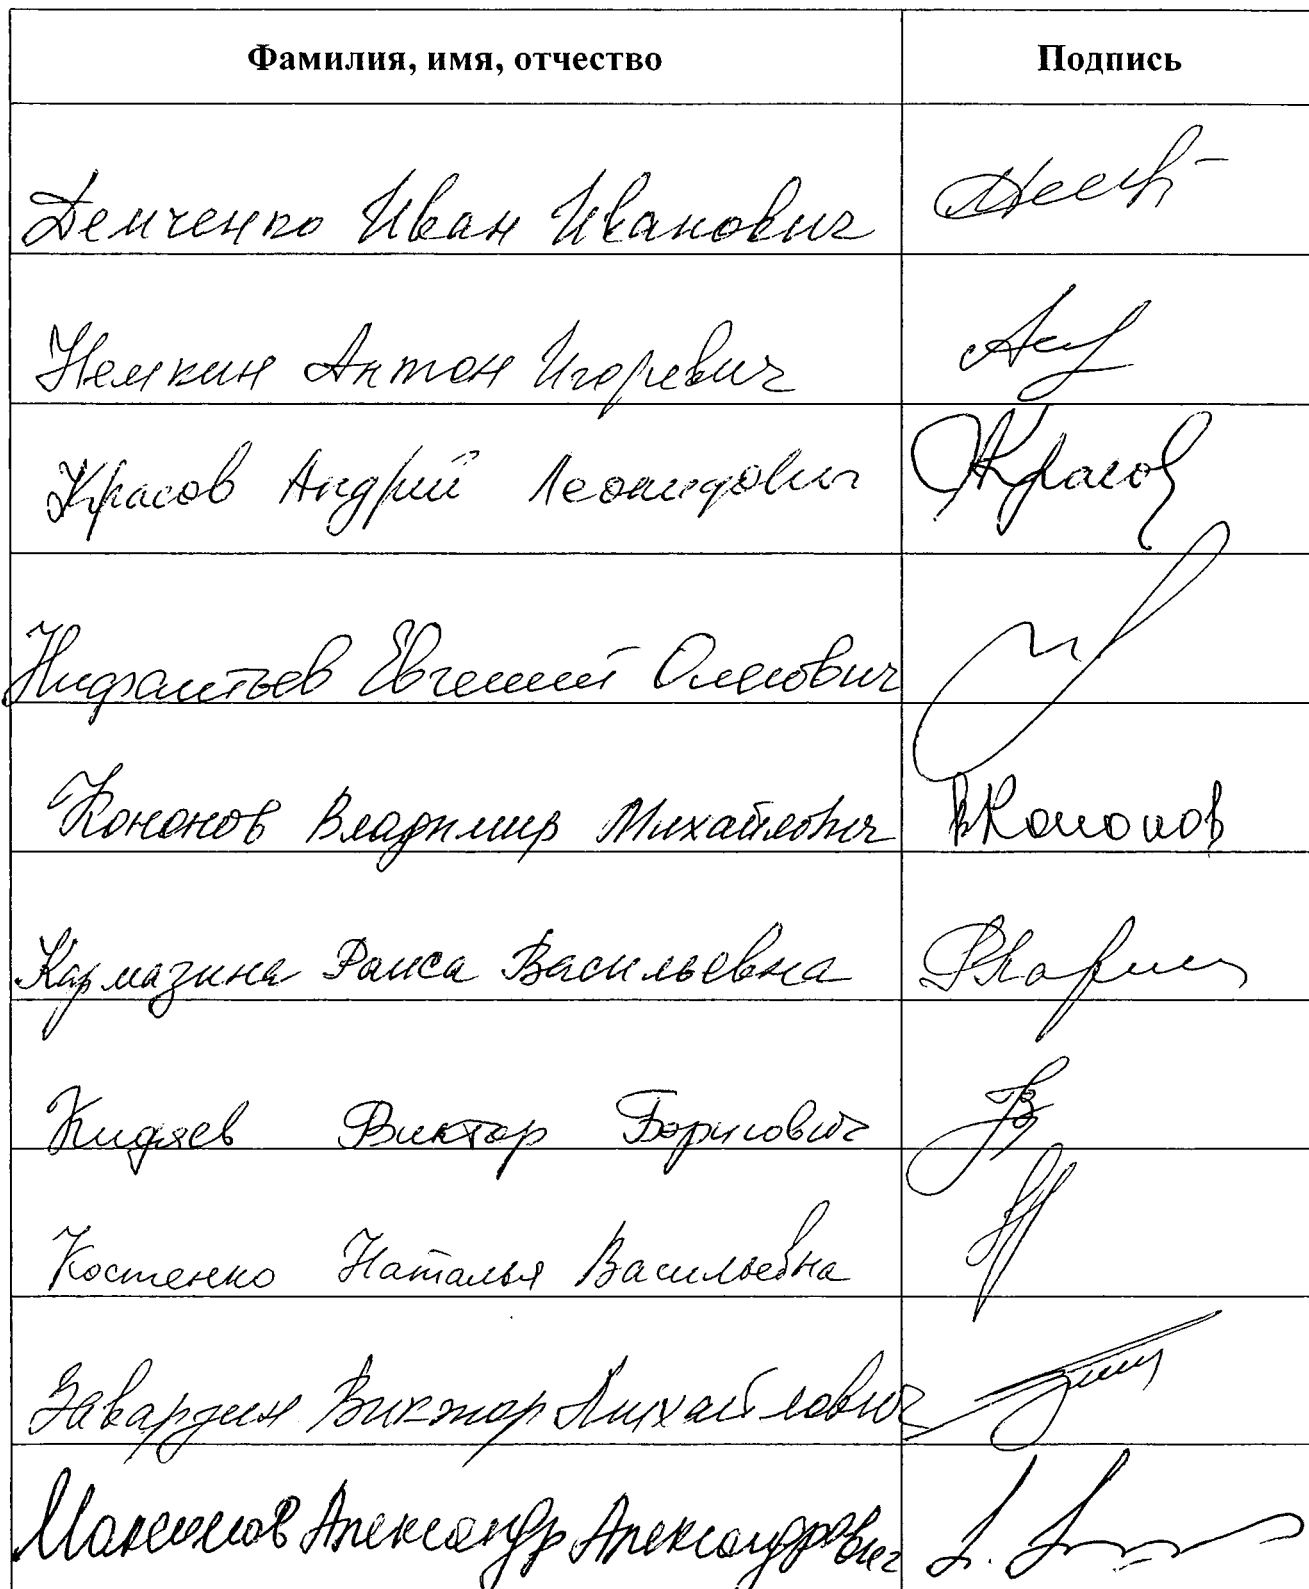 Фамилия, имя, отчество Подпись
Демченко Иван Иванович
Немкин Антон Игоревич
Красов Андрей Леонидович Красов
Нифантьев Евгений Олегович
Кононов Владимир Михайлович ВКононов
Кармазина Раиса Васильевна РКарм
Кидяев Виктор Борисович
Костенко Наталья Васильевна
Заварзин Виктор Михайлович
Максимов Александр Александрович